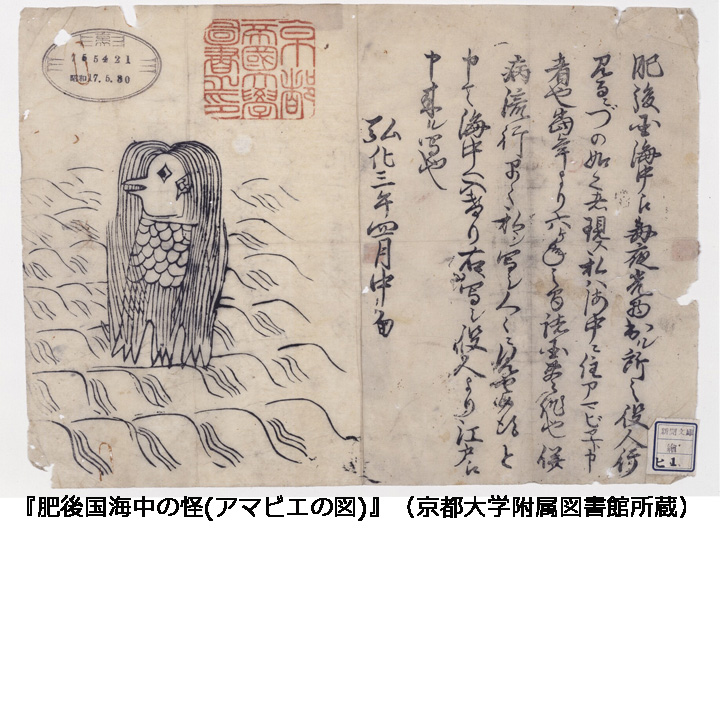 肥後国海中え毎夜光物出ル所之役人行
見るニづの如之者現ス私ハ海中ニ住アマビヱト申
者也当年より六ヶ年之間諸国豊作也併
病流行早々私シ写シ人々ニ見せ候得と
申て海中へ入けり右写シ役人より江戸え
申来ル写也
弘化三年四月中旬
京都
帝國大學
圖書之印
165421
昭和17.5.30
新聞文庫
ヒ1
『肥後国海中の怪(アマビエの図)』（京都大学附属図書館所蔵）